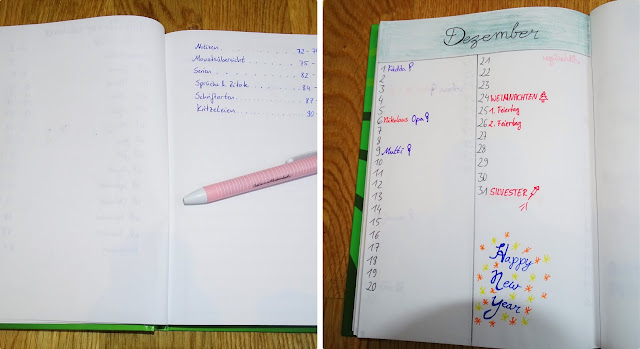 Notizen 72 -
Monatsübersicht 75 -
Serien 82 -
Sprüche & Zitate 84 -
Schriftarten 87
Kritzeleien 90
Dezember
1
2
3
4
5
6 Nikolaus Opa
7
8
9 Mutti
10
11
12
13
14
15
16
17
18
19
20
21
22
23
24 WEIHNACHTEN
25 1. Feiertag
26 2. Feiertag
27
28
29
30
31 SILVESTER
Happy
New
Year